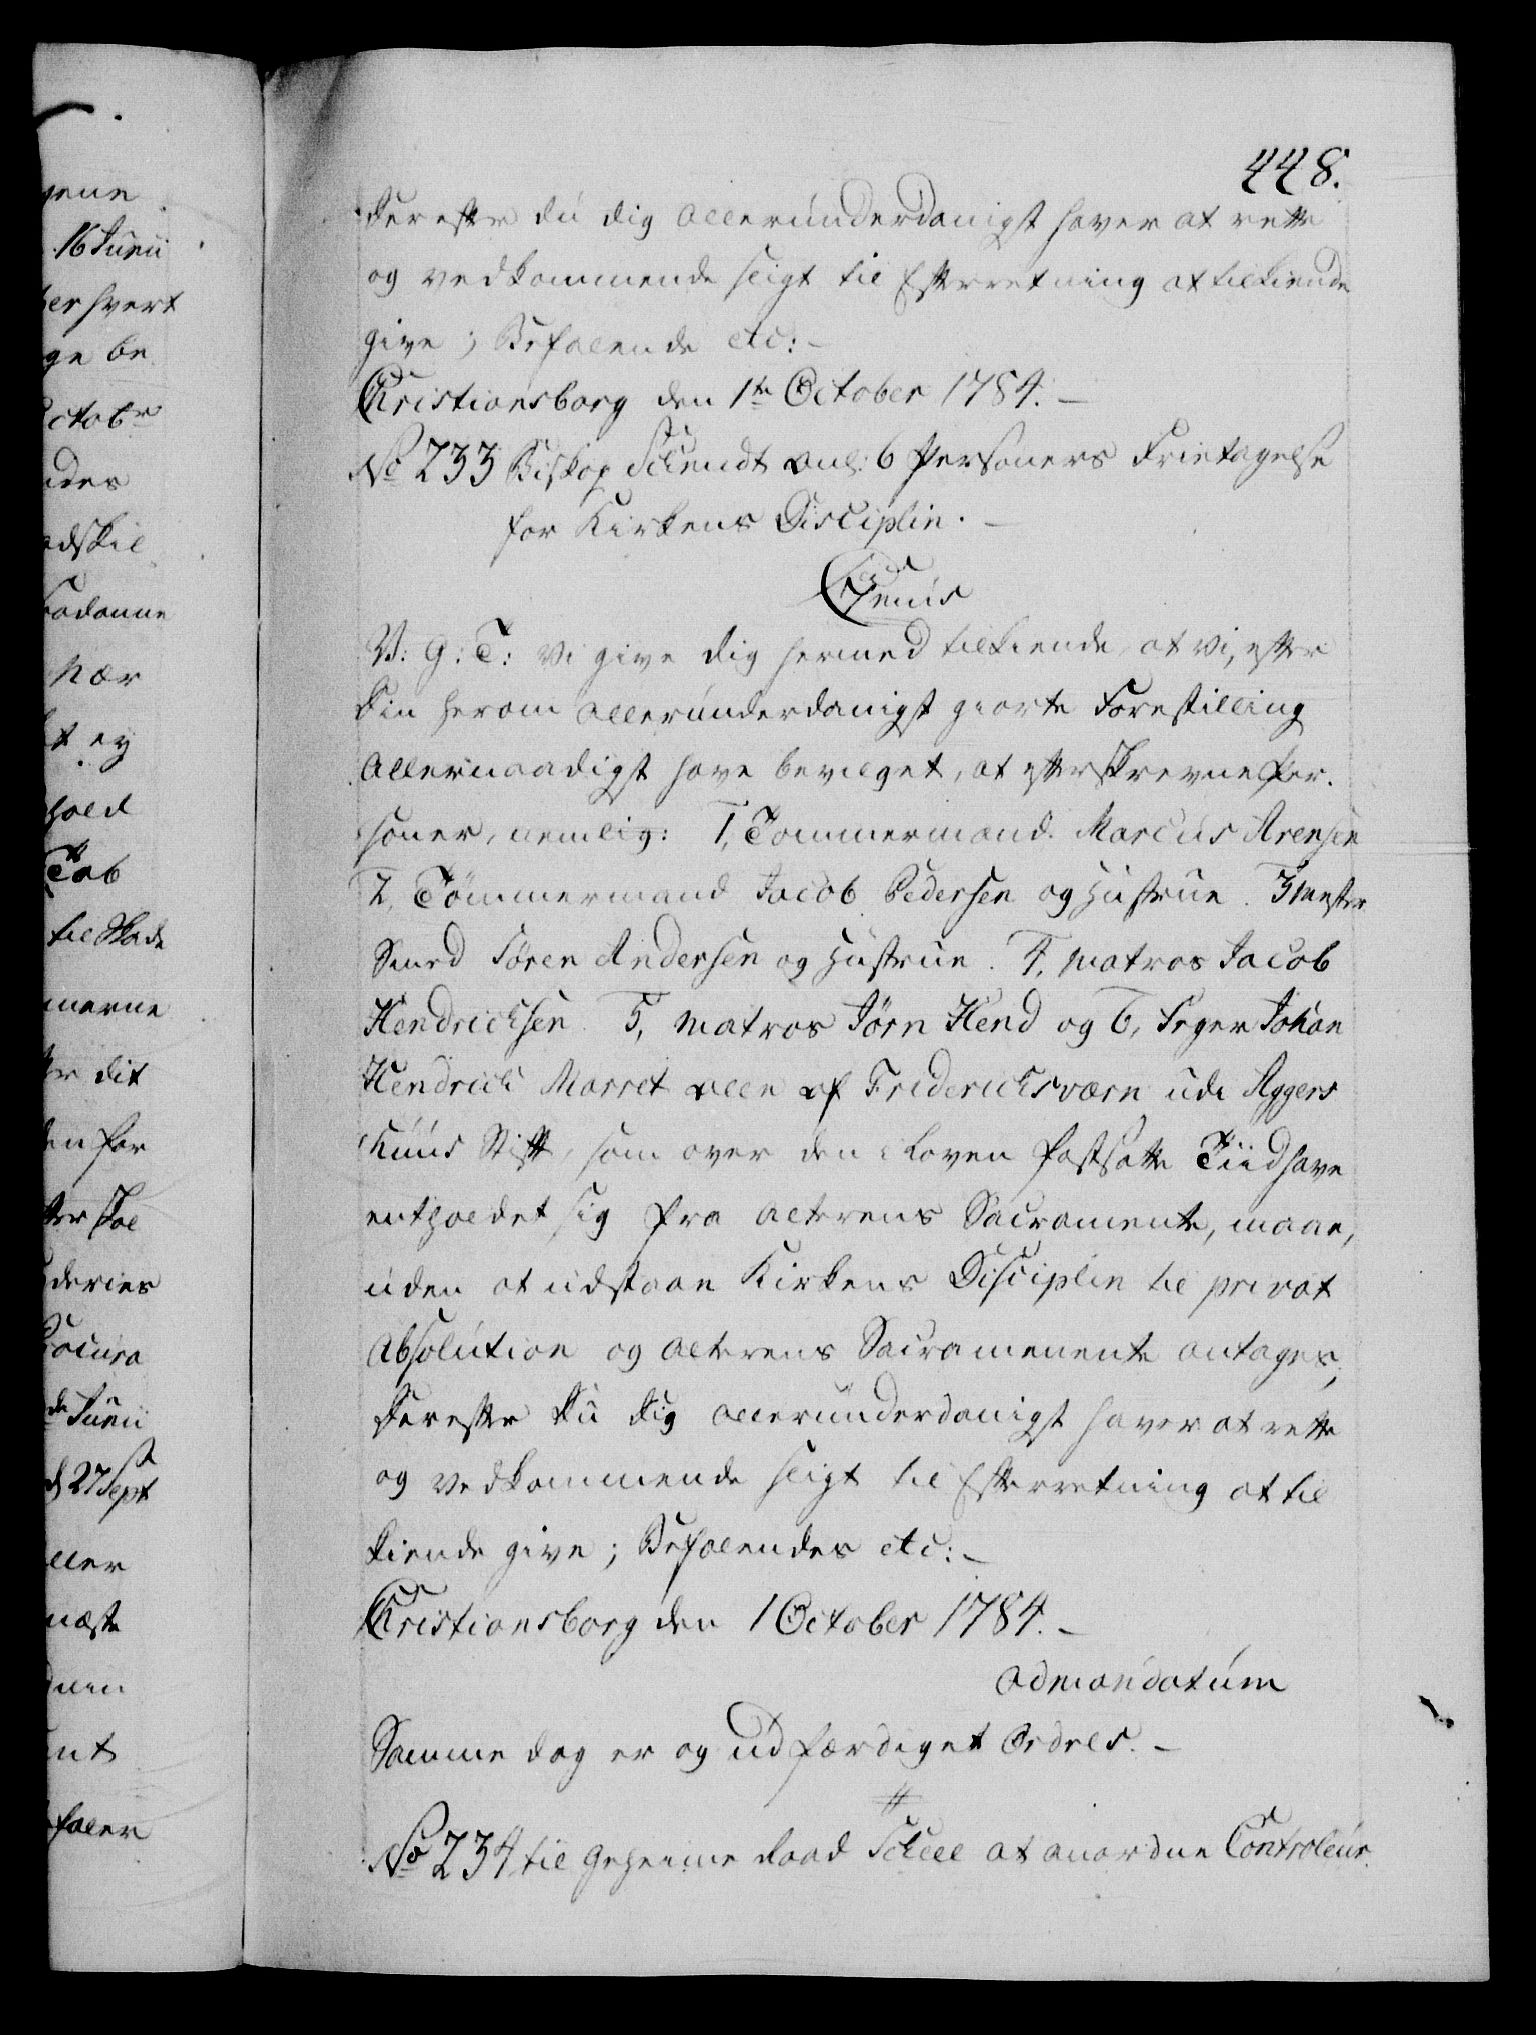 448.
Derefter du dig allerunderdanigst haver at rette
og vedkommende sligt til Efterretning at tilkiende
give; Befalende etc:-
Christiansborg den 1te October 1784.-
No 233 Biskop Schmidt anl: 6 Personers Fritagelse
for Kirkens Disciplin.-
C7mus
V: G: T: Vi give dig hermed tilkiende, at Vi, efter
Din herom allerunderdanigst giorte Forestilling
allernaadigst have bevilget, at efterskrevne Per-
soner, nemlig: 1, Tømmermand Marcus Arensen
2, Tømmermand Jacob Pedersen og Hustrue. 3 Mester
Smed Søren Andersen og Hustrue. 4, Matros Jacob
Hendrichsen. 5, Matros Jørn Hend og 6, Feyer Johan
Hendrich Marret alle af Friderichsværn udi Aggers
huus Stift, som over den i Loven fastsatte Tiid have
entholdet sig fra Alterens Sacramente, maae,
uden at udstaae Kirkens Disciplin til privat
Absolution og Alterens Sacramenente antages;
Derefter Du Dig allerunderdanigst haver at rette
og vedkommende sligt til Efterretning at til
kiende give; Befalendes etc:-
Christiansborg den 1 October 1784.-
admandatum
Samme dag er og udfærdiget Ordres.-
No 234 til Geheime Raad Scheel at anordne Controleur
gene
16 Junii
er hvert
ge be
octobr
ades
adskil
saadanne
nær
t ey
hold
Tab
til Skade
merne
er dit
en for
ter skal
deries
ocura
de Junii
d 27 Sept
eller
næste
duen
nt
faler